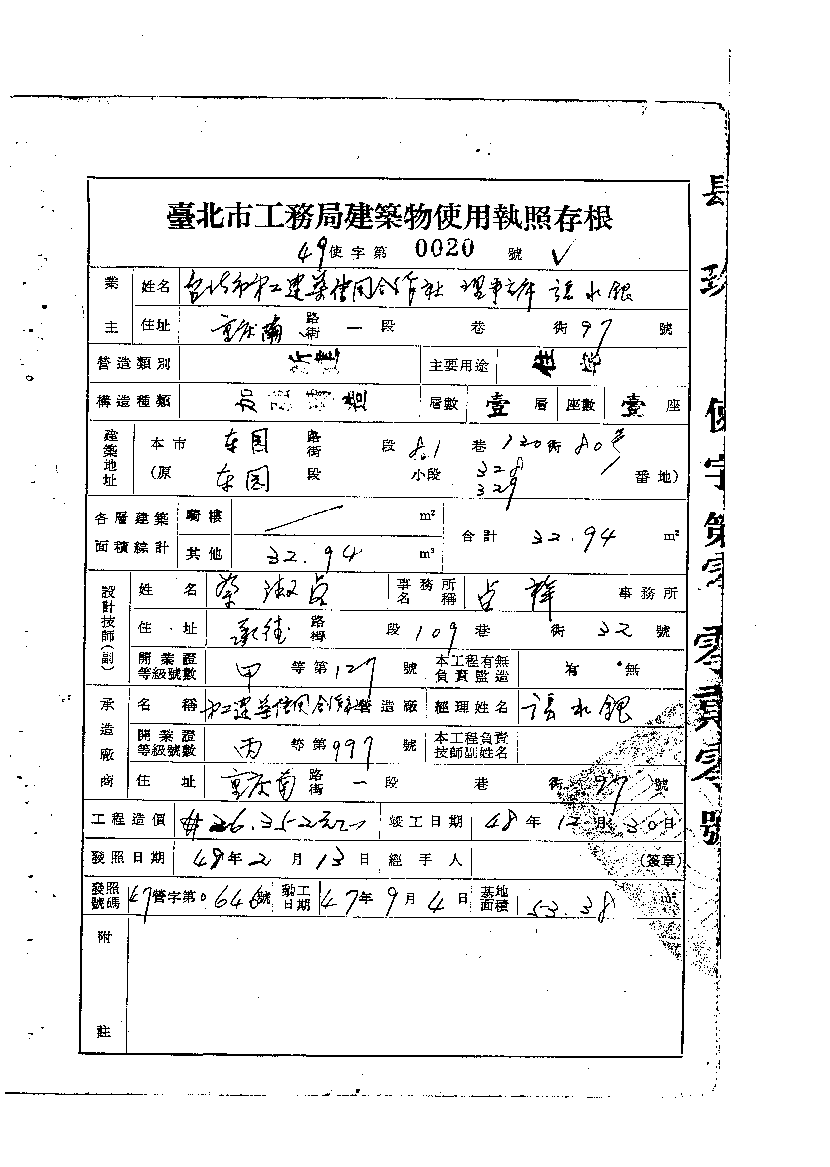 臺北市工務局建築物使用執照存根
49使字第 0020 號 ✓
業主 姓名 台北市第二建築信用合作社 理事主席 張水銀
住址 重慶南 路街 一 段 巷 街 97 號
營造類別 新建 主要用途 住宅
構造種類 加强磚造 層數 壹 層 座數 壹 座
建築地址 本市 东园 路街 段 81 巷 120 街 80号
(原 东园 段 小段 328 329 番地)
各層建築面積綜計 騎樓 m² 合計 32.94 m²
其他 32.94 m²
設計技師(副) 姓名 蔡淑貞 事務所名稱 事務所
住址 承德 路街 段 109 巷 街 32 號
開業證等級號數 甲 等第 127 號 本工程有無負責監造 有 無
承造廠商 名稱 第二建築信用合作社 營造廠 經理姓名 張水銀
開業證等級號數 丙 等第 997 號 本工程負責技師副姓名
住址 重慶南 路街 一 段 巷 街 97 號
工程造價 26,352元 竣工日期 48 年 12 月 30 日
發照日期 49 年 2 月 13 日 經手人 (簽章)
發照號碼 47 營字第 064 號 動工日期 47 年 9 月 4 日 基地面積 53.38 m²
附註
使字第零零貳零號